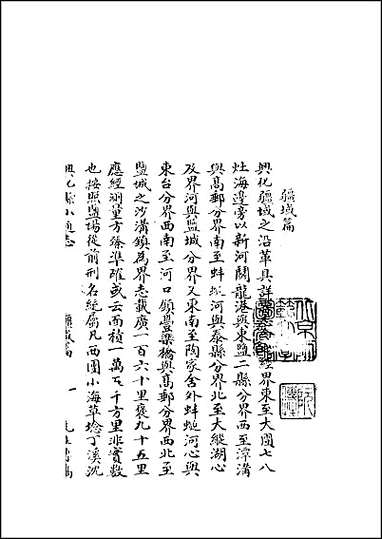 疆域篇
興化疆域之沿革具詳經界東至大團七八
灶海邊旁以新河鬭龍港與東鹽二縣分界西至漳溝
與高郵分界南至蚌蜒河與泰縣分界北至大縱湖心
及界河與鹽城分界又東南至陶家舍外蚌蜒河心與
東台分界西南至河口鎮豐樂橋與高郵分界西北至
鹽城之沙溝鎮為界志載廣一百六十里袤九十五里
應經測量方臻準確或云面積一萬五千方里非實數
也按照鹽場從前刑名統屬凡西團小海草堰丁溪沈
興化縣小通志
疆域篇
一